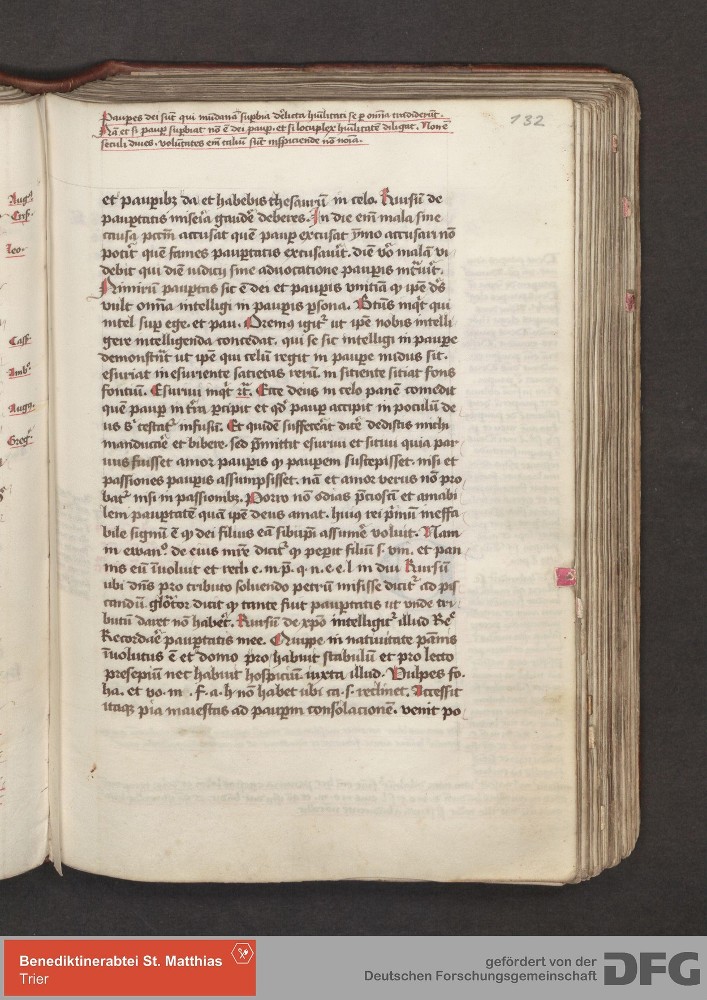 Paupes dei sūt qui mūdana supbia dei̅cta hūilitati se p omīa tradiderūt.
Nā et si paup supbiat nō ē dei paup. et si locuplex hūilitatē diligat. Non ē
seculi diues. volūtates em̄ taliū sūt inspiciende nō noīa.
132
et paupibꝫ da et habebis thesaurū in celo. Rursū de
paupertatis miseīa gaudē deberes. In die em̄ mala sine
causa pctm̄ accusat quē paup excusat ymo accusari nō
potīt quē fames paupertatis excusauīt. diē vo malā vi
debit qui diē iudicij sine aduocatione paupis
Nimirū paupertas sic ē dei et paupis ꝙ ipē dūs
vult omīa intelligi in paupis psona. Btūs inqt qui
intel sup ege. et pau. Oremꝰ igit ut ipē nobis intelli
gere intelligenda concedat. qui se sic intelligi in paupe
demonstrat ut ipē qui celū regit in paupe nudus sit.
esuriat in esuriente satietas rerū. in sitiente sitiat fons
fontiū. Esuriui inqt etc. Ecce deus in celo panē comedit
quē paup in tra pcipit et qd paup accipit in poculū de
us s testat infusū. Et quidē suffecerat dice dedistis michi
manducare et bibere. sed pmittit esuriui et sitiui quia par
uus fuisset amor paupis ꝙ paupem suscepisset. nisi et
passiones paupis assumpsisset. nā et amor verus nō pro
bat nisi in passionibꝫ. Porro nō p̄ciosā et amabi
lem paupertatē quā ipē deus amat. huiꝰ rei primū ineffa
bile signū ē ꝙ dei filius eā sibiipi assumē voluit. Nam
in ewanº de eius mre dicit ꝙ pepit filiū s. vni. et pan
nis eū īuoluit et recli e. in p. q. n. e. e. l in diu Rursū
ubi dn̄s pro tributo soluendo petrū misisse dicit ad pis
candū. glosator dicit ꝙ tante fuit paupertatis ut unde tri
butū daret nō haberet. Rursū de xpo intelligit illud Re
Recordare paupertatis mee. Quippe in natiuitate pannis
īuolutus ē et domo pro habuit stabulū et pro lecto
presepiū nec habuit hospiciū iuxta illud. Vulpes fo.
ha. et vo. in. f. a. h nō habet ubi ca. s. reclinet. Accessit
itaqꝫ pia maiestas ad paupm consolacionē. venit po
Augꝰ
Crisꝰ.
leo.
Cass
Ambº.
Augꝰ.
Gregꝰ.
Benediktinerabtei St. Matthias
Trier
gefördert von der
Deutschen Forschungsgemeinschaft
DFG